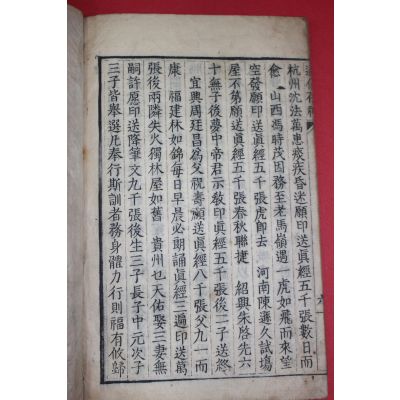 杭州沈法嵩患痰疾昏迷願印送眞經五千張數日而
愈 山西馮時茂因務至老馬嶺遇一虎如飛而來望
空發願印送眞經五千張虎即去 河南陳遜久試塲
屋不第願送眞經五千張春秋聯捷 紹興朱啓先六
十無子後夢中帝君示敎印送五千張後二子送終
宜興周廷昌爲父祝壽願送眞經八千張父九一而
康 福建林如錦每日早晨必朗誦眞經三遍印送萬
張後兩隣失火獨林屋如舊 貴州乜天佑娶三妻無
嗣許愿印送降筆文九千張後生三子長子中元次子
三子皆擧選凡奉行斯訓者務身體力行則福有攸歸